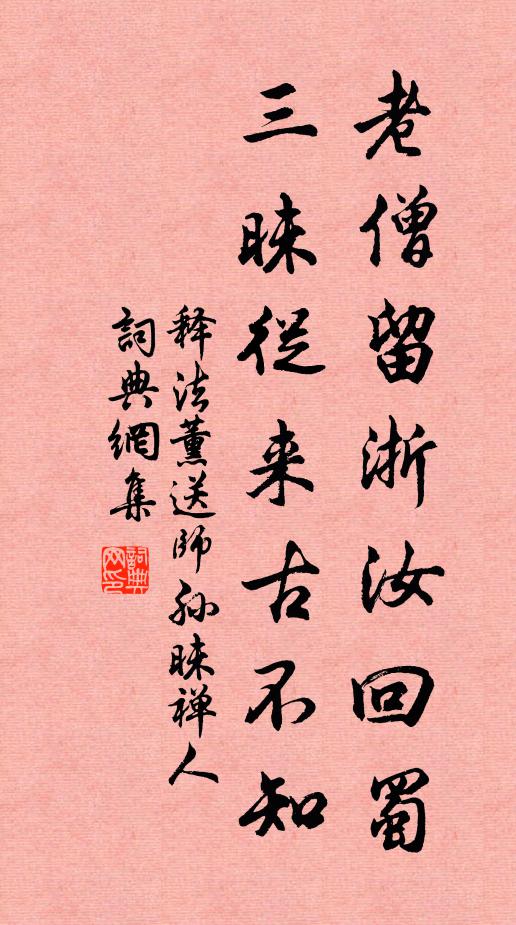 老僧留浙汝回蜀
三昧從来古不知
释法薰送师孙昧禅人
詞典網集
詞典网印